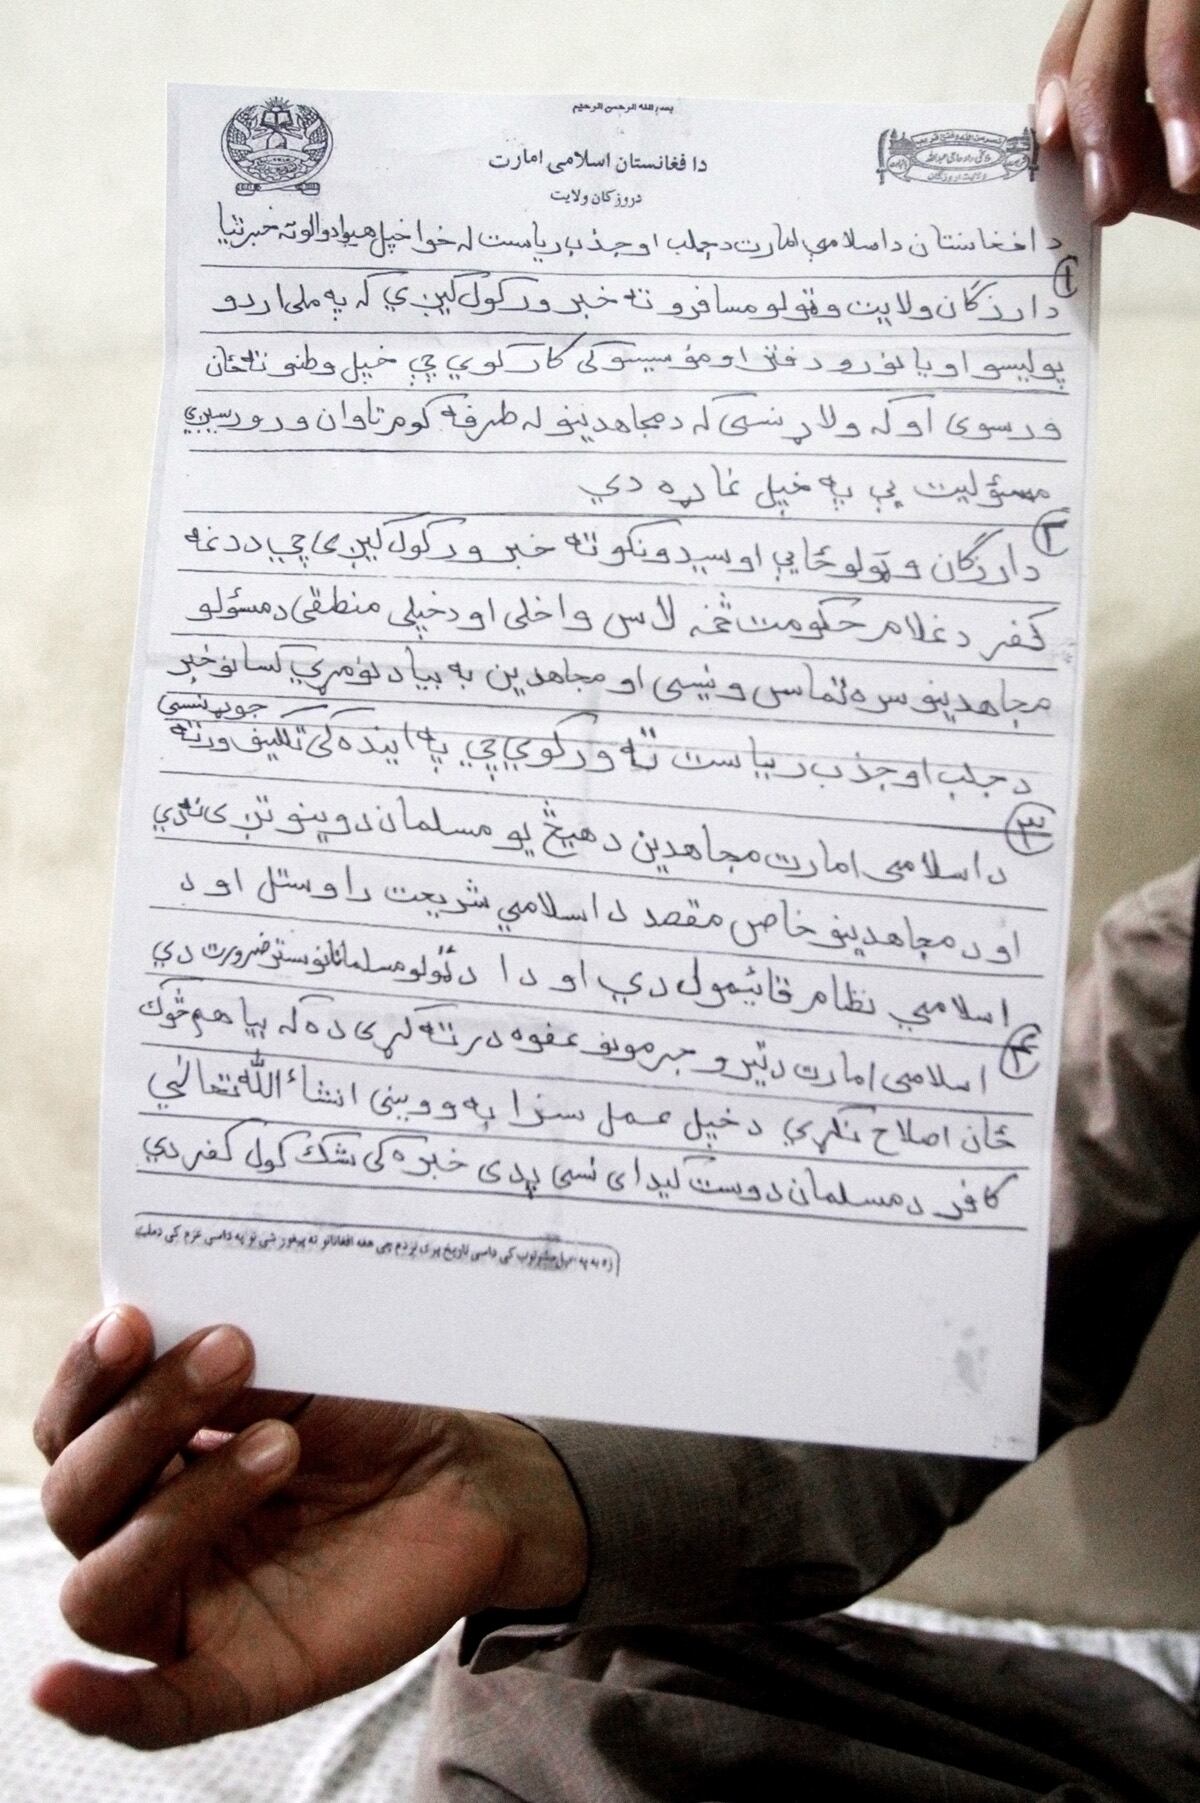 بسم الله الرحمن الرحیم
د افغانستان اسلامی امارت
دروزګان ولایت
نصر من الله و فتح قریب
ولایت اروزګان
د افغانستان د اسلامي امارت د جلب او جذب ریاست له خوا خپل هیوادوالوته خبرتیا
۱
د ارزګان ولایت و ټولو مسافرو ته خبر ورکول کیږي که په ملی اردو
پولیسو او یا نورو دفتر او مؤسیسو کی کار کوي چې خپل وطنو ته ځان
ورسوی او که ولاړ نسی که د مجاهدینو له طرفه کوم تاوان ورورسیږي
مسؤلیت یې په خپل غاړه دي
۲
د ارزګان و ټولو ځایي اوسیدونکو ته خبر ورکول کیږی چې د دغه
کفر د غلام حکومت څخه لاس واخلی او د خپلی منطقی د مسؤلو
مجاهدینو سره تماس ونیسی او مجاهدین به بیا د نوموړي کسانو خبر
د جلب او جذب ریاست ته ورکوي چې په اینده کی تکلیف ورته
جوړ نسی
۳
د اسلامی امارت مجاهدین د هیڅ یو مسلمان د وینو تږی نه دي
او د مجاهدینو خاص مقصد د اسلامي شریعت راوستل او د
اسلامي نظام قائیمول دي او دا د ټولو مسلمانانو ستر ضرورت دي
۴
اسلامی امارت د تیرو جرمونو عفوه درته کړی ده که بیا هم څوک
ځان اصلاح نکړي د خپل عمل سزا به وویني انشاء الله تعالی
کافر د مسلمان دوست کیدای نسی پدی خبره کی شک کول کفر دي
زه به په خپل